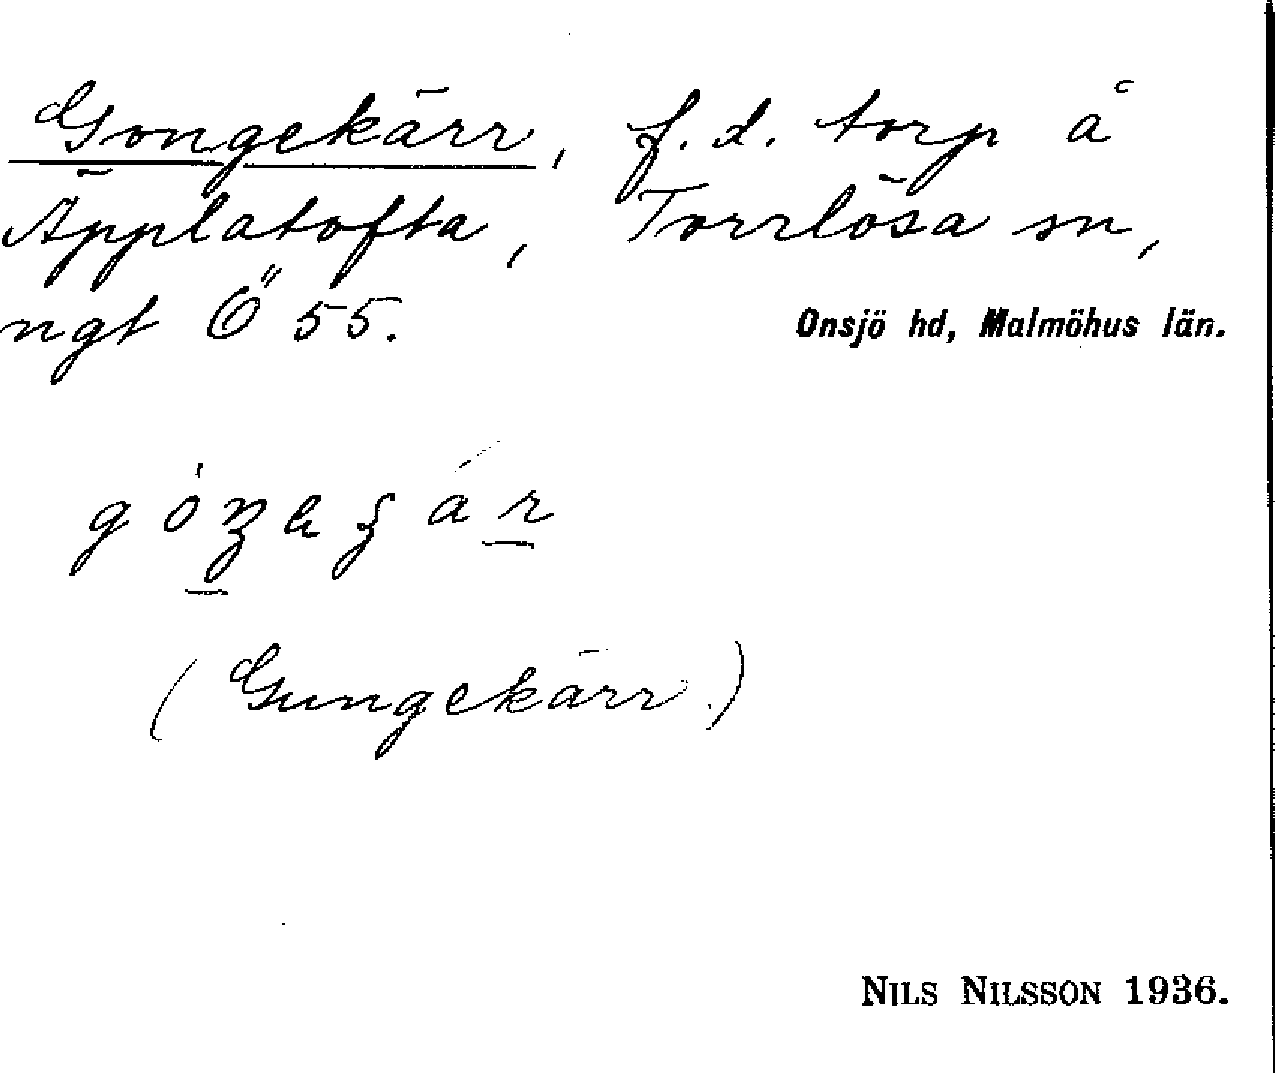 Gongekärr, f.d. torp å
Äpplatofta, Torrlösa sn,
ngt Ö 55.
Onsjö hd, Malmöhus län.
(Gungekärr.)
NILS NILSSON 1936.